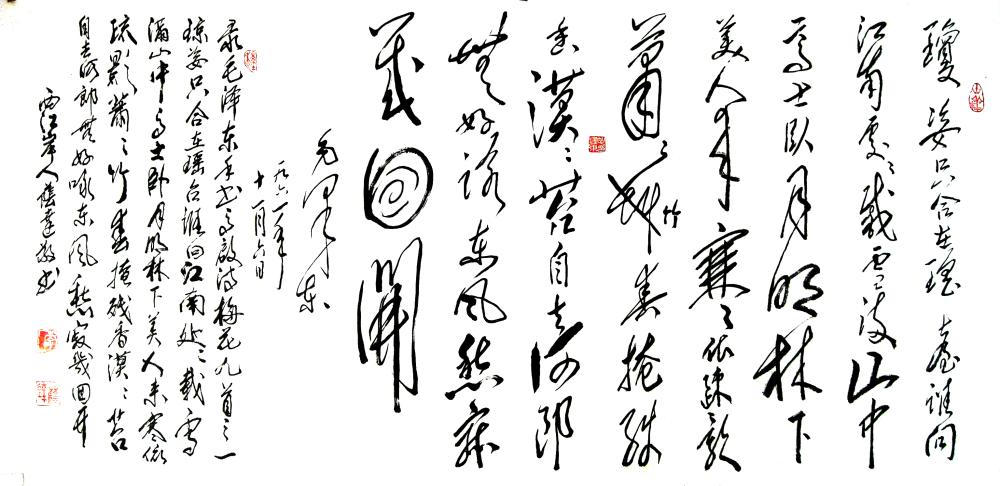 瓊姿只合在瑤臺誰向
江南處處栽雪滿山中
高士臥月明林下
美人來寒依疎影
蕭蕭竹春掩殘
香漠漠苔自去何郎
無好詠東風愁寂
幾回開
毛澤東
一九六一年
十一月六日
录毛泽东手书高启诗梅花九首之一
琼姿只合在瑶台谁向江南处处栽雪
满山中高士卧月明林下美人来寒依
疏影萧萧竹春掩残香漠漠苔
自去何郎無好咏东风愁寂幾回开
西江岸人